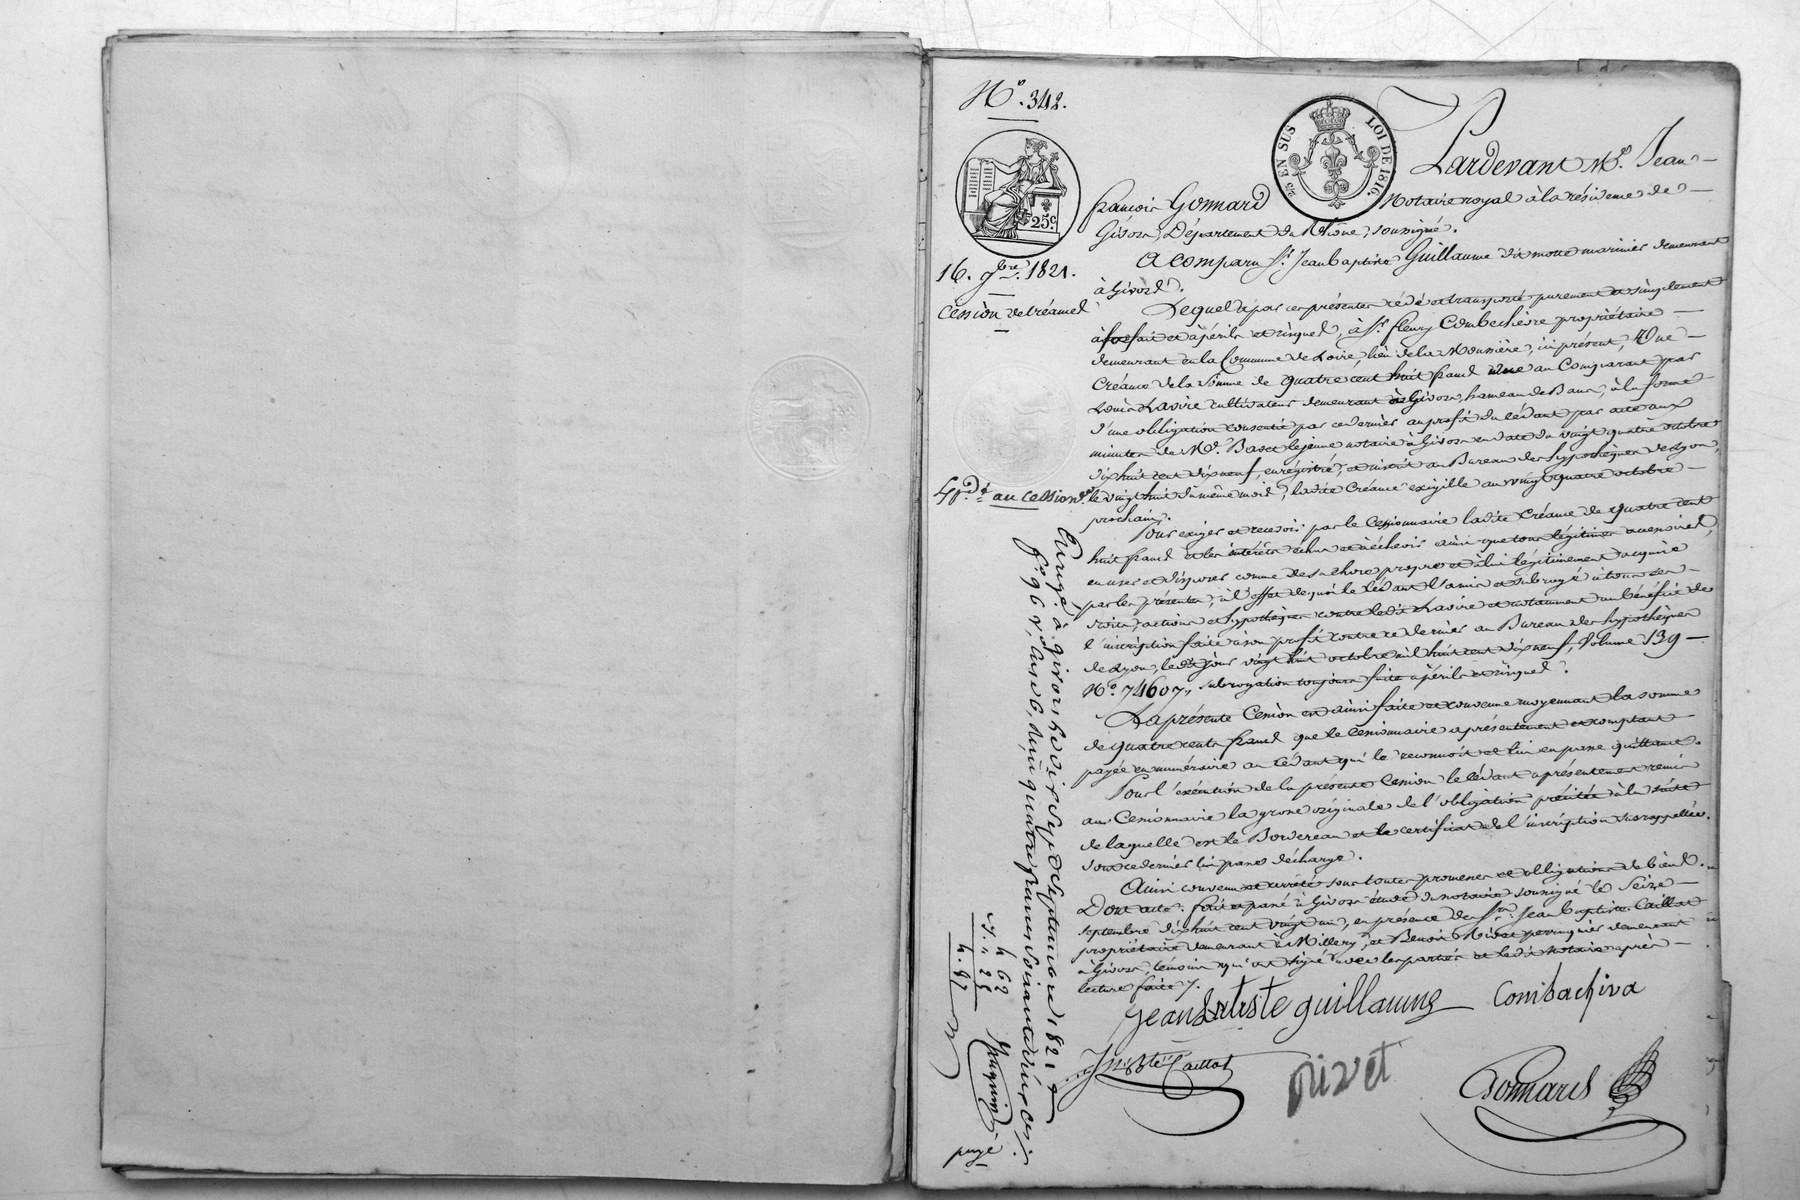 N.o 342.
25 EN SUS
LOI DE 1816.
25.c
Pardevant M.e Jean
françois Gonnard Notaire royal à la résidence de
Givors, Département du Rhône, soussigné.
16. 7bre. 1821.
A comparu S.r Jean Baptiste Guillaume dit motte marinier demeurant
à Givors.
Cession de créance
Lequel a par ces présentes cédé et transporté purement et simplement
à forfait et à périls et risques, à S.r fleury Combechèvre propriétaire
demeurant en la Commune de Loire, lieu de la Moussière, ici présent, Une
Créance de la Somme de quatre cent huit francs due au Comparant par
Louis Lavire cultivateur demeurant à Givors, hameau de Bans, à la forme
d'une obligation consentie par ce dernier au profit du cédant par acte aux
minutes de M.e Basset lejeune notaire à Givors en date du vingt quatre octobre
dix huit cent dix neuf, enregistré, et inscrit au Bureau des hypothèques de Lyon,
G.de au Cession.re
le vingt huit du même mois, ladite Créance exigible au vingt quatre octobre
prochain.
Pour exiger et recevoir par le Cessionnaire ladite Créance de quatre cent
huit francs et les intérêts échus et à échoir ainsi que tous légitimes accessoires,
en user et disposer comme de sa chose propre et à lui légitimement acquise
par les présentes, à l'effet de quoi le cédant l'a mis et subrogé à tous ses
droits, actions et hypothèques contre ledit Lavire et notamment au bénéfice de
l'inscription faite à son profit contre ce dernier au Bureau des hypothèques
de Lyon, ledit jour vingt huit octobre mil huit cent dix neuf, Volume 139
N.o 74607, subrogation toujours faite à périls et risques.
La présente Cession est ainsi faite et convenue moyennant la somme
de quatre cents francs que le Cessionnaire a présentement et comptant
payée en numéraire au cédant qui le reconnoit et lui en passe quittance.
Pour l'exécution de la présente Cession le cédant a présentement remis
au Cessionnaire la grosse originale de l'obligation précitée à la suite
de laquelle est le Bordereau et le certificat de l'inscription susrappellée,
dont ce dernier lui passe décharge.
Ainsi convenu et arrêté sous toutes promesses et obligations de biens.
Dont acte. fait et passé à Givors étude du notaire soussigné le Seize
septembre dix huit cent vingt un, en présence des S.rs Jean Baptiste Caillot
propriétaire demeurant à Millery, et Benoit Rivet perruquier demeurant
à Givors, témoins qui ont signé avec les parties et ledit notaire après
lecture faite.
Jean Batiste guillaume
Combachiva
Caillot
rivet
Gonnard
Enregé à givors le dix Sept Septembre 1821
f.o 96 v. Case 6, reçu quatre francs Soixante deux cs.
4 62
25
4. 87
payé